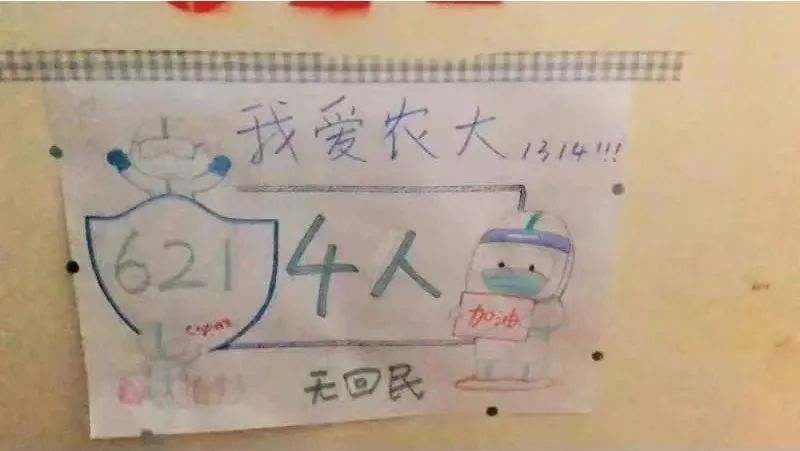 我爱农大 1314!!!
621
4人
加油
无回民